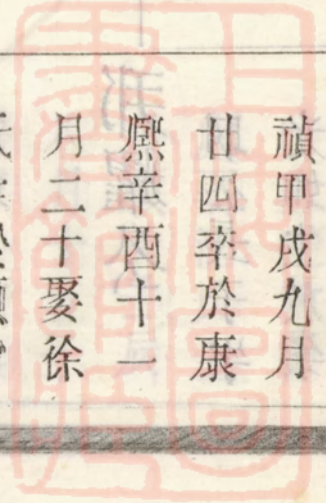 禎甲戌九月
廿四卒於康
熈辛酉十一
月二十娶徐